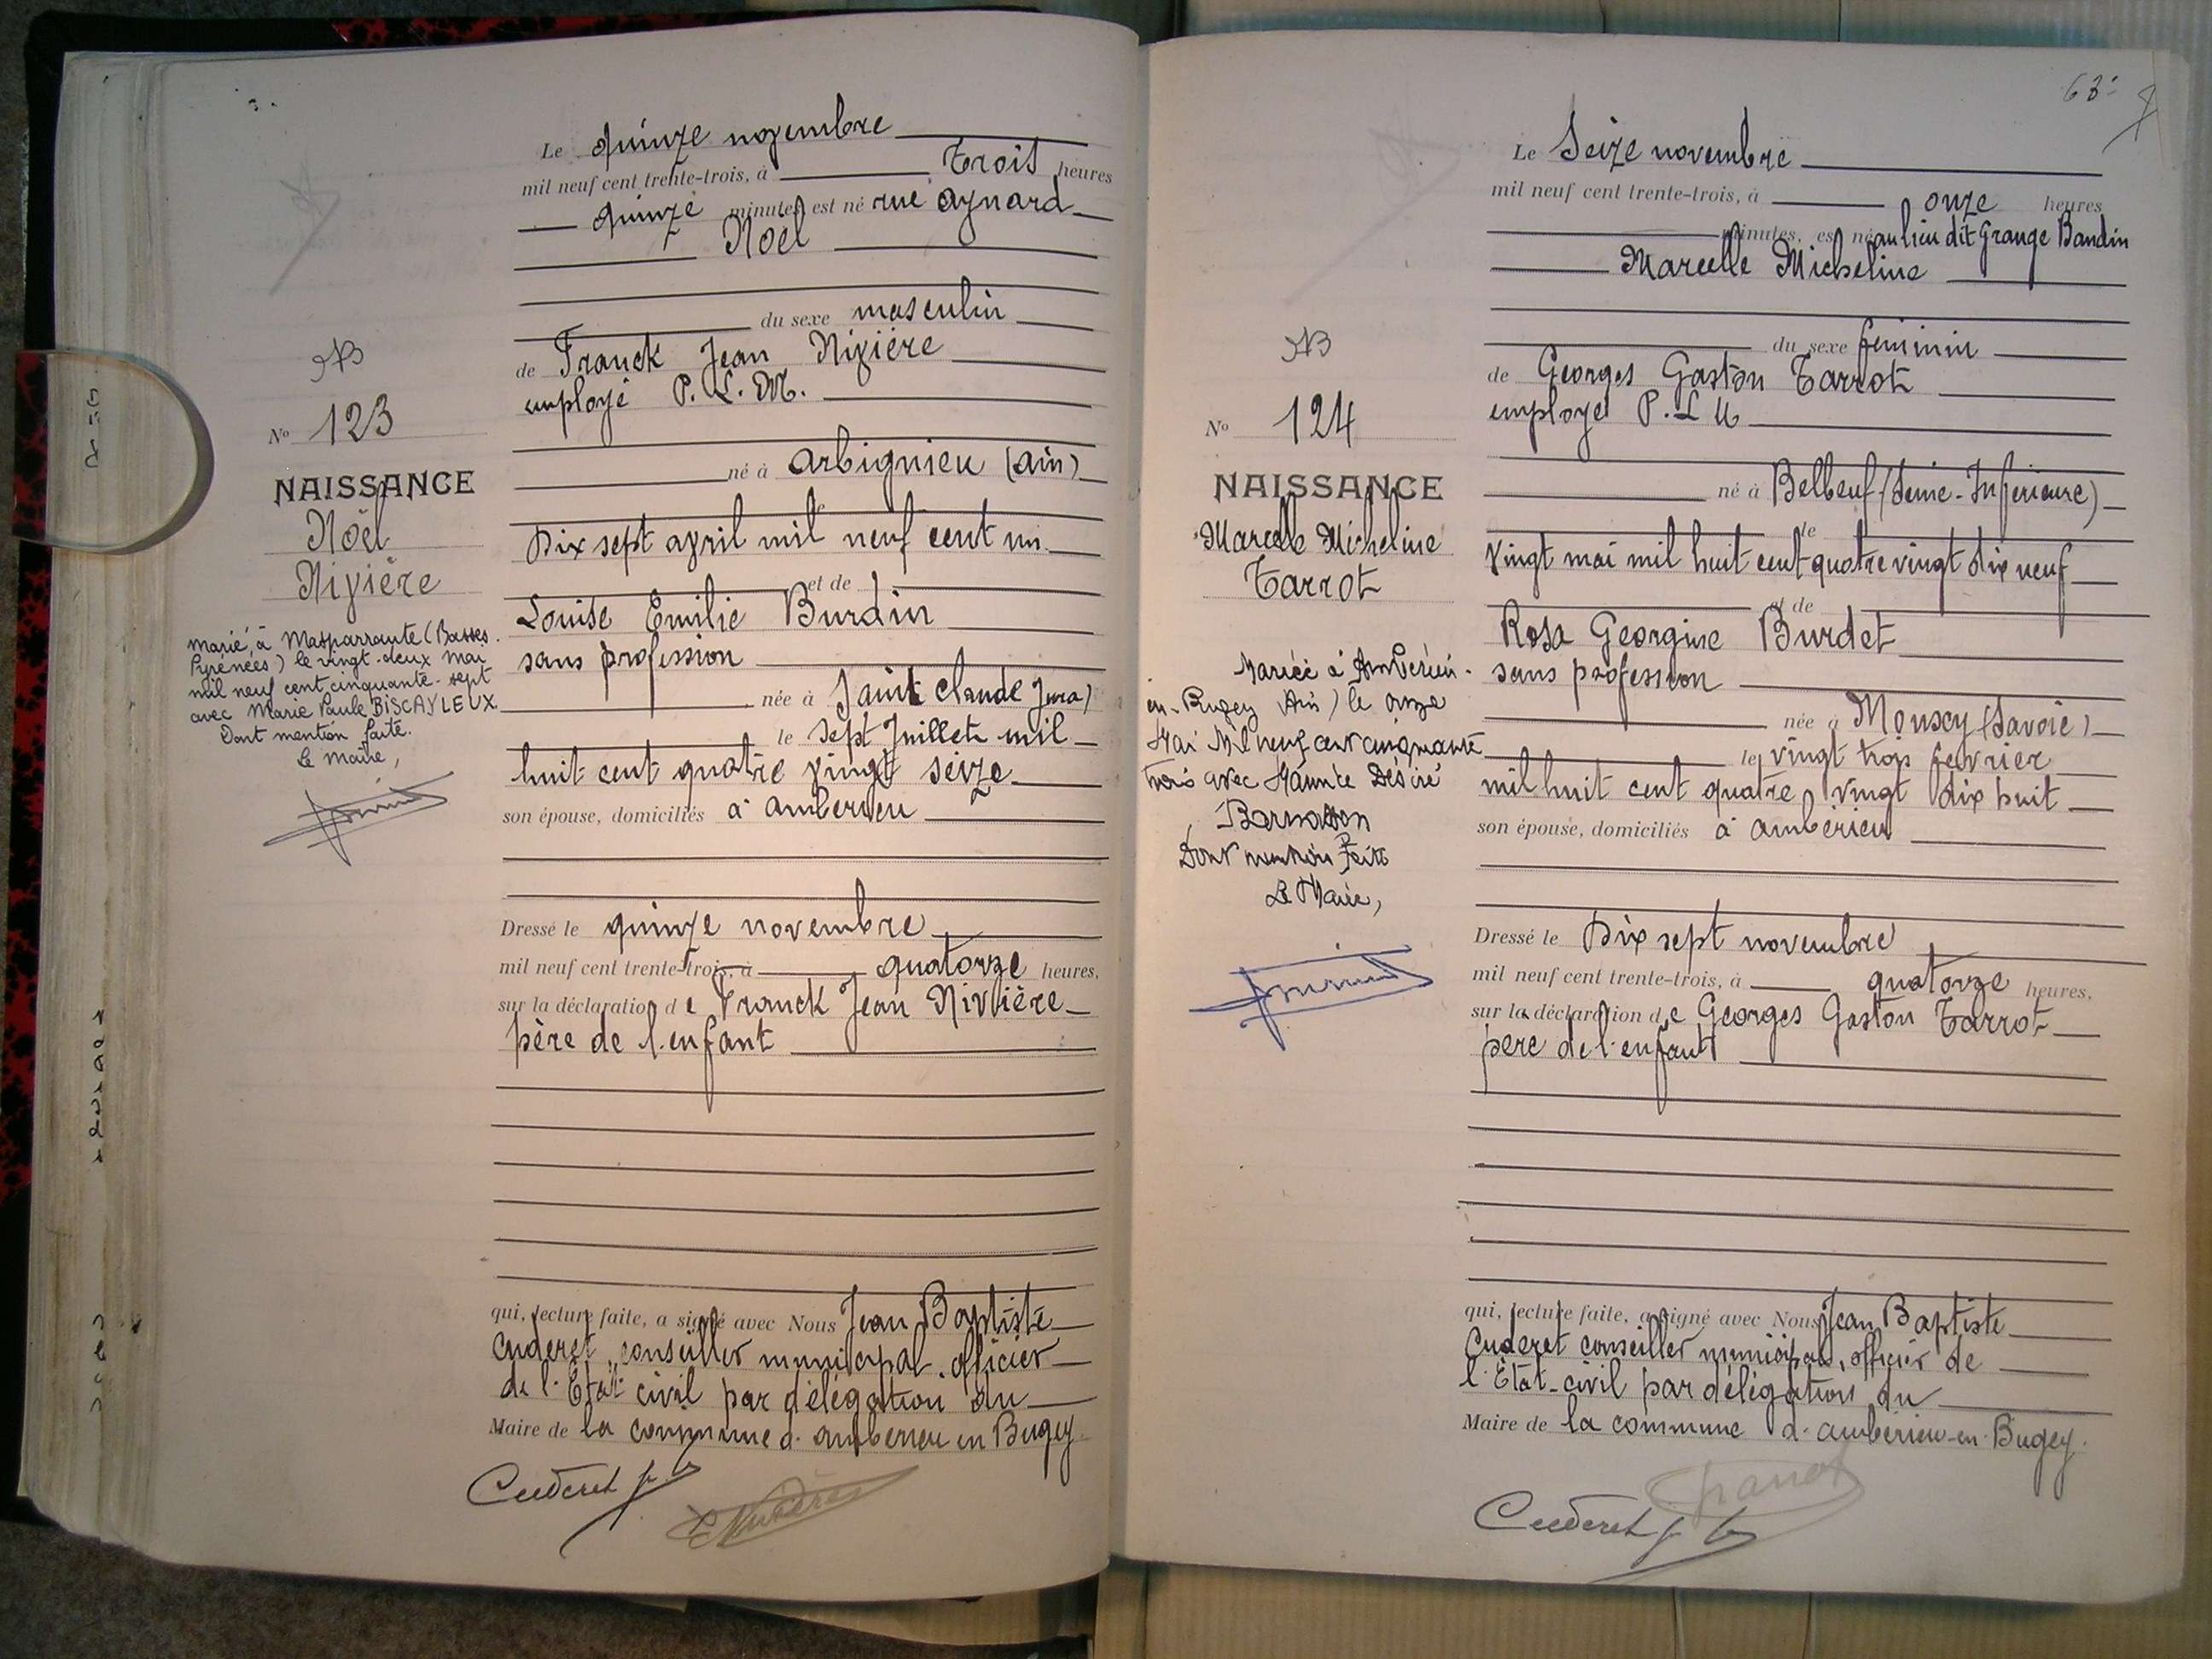 Le quinze novembre
mil neuf cent trente-trois, à Trois heures
quinze minutes est né rue Aynard
Noël
du sexe masculin
de Franck Jean Nivière
employé P. L. M.
né à Arbignieu (Ain)
le
Dix sept avril mil neuf cent un
et de
Louise Emilie Burdin
sans profession
née à Saint Claude Jura)
le sept Juillet mil
huit cent quatre vingt seize
son épouse, domiciliés à Ambérieu
Dressé le quinze novembre
mil neuf cent trente-trois, à quatorze heures,
sur la déclaration de Franck Jean Nivière
père de l'enfant
qui, lecture faite, a signé avec Nous Jean Baptiste
Cuderet, conseiller municipal, officier
de l'Etat civil par délégation du
Maire de la commune d'Ambérieu en Bugey
Cuderet
N° 123
NAISSANCE
Noël
Nivière
Marié, à Masparraute (Basses-
Pyrénées) le vingt-deux mai
mil neuf cent cinquante-sept
avec Marie Paule BISCAYLEUX
Dont mention faite.
Le Maire,
63
Le Seize novembre
mil neuf cent trente-trois, à onze heures
minutes, est né au lieu dit Grange Bandin
Marcelle Micheline
du sexe féminin
de Georges Gaston Tarrot
employé P. L M
né à Belbeuf (Seine-Inférieure)
le
vingt mai mil huit cent quatre vingt dix neuf
et de
Rosa Georgine Burdet
sans profession
née à Mouxy (Savoie)
le vingt trois février
mil huit cent quatre vingt dix huit
son épouse, domiciliés à Ambérieu
Dressé le Dix sept novembre
mil neuf cent trente-trois, à quatorze heures,
sur la déclaration de Georges Gaston Tarrot
père de l'enfant
qui, lecture faite, a signé avec Nous Jean Baptiste
Cuderet conseiller municipal, officier de
l'Etat-civil par délégation du
Maire de la commune d'Ambérieu-en-Bugey.
Cuderet
N° 124
NAISSANCE
Marcelle Micheline
Tarrot
Mariée à Ambérieu-
en-Bugey (Ain) le onze
Mai Mil neuf cent cinquante
trois avec Maurice Désiré
Dont mention faite
Le Maire,